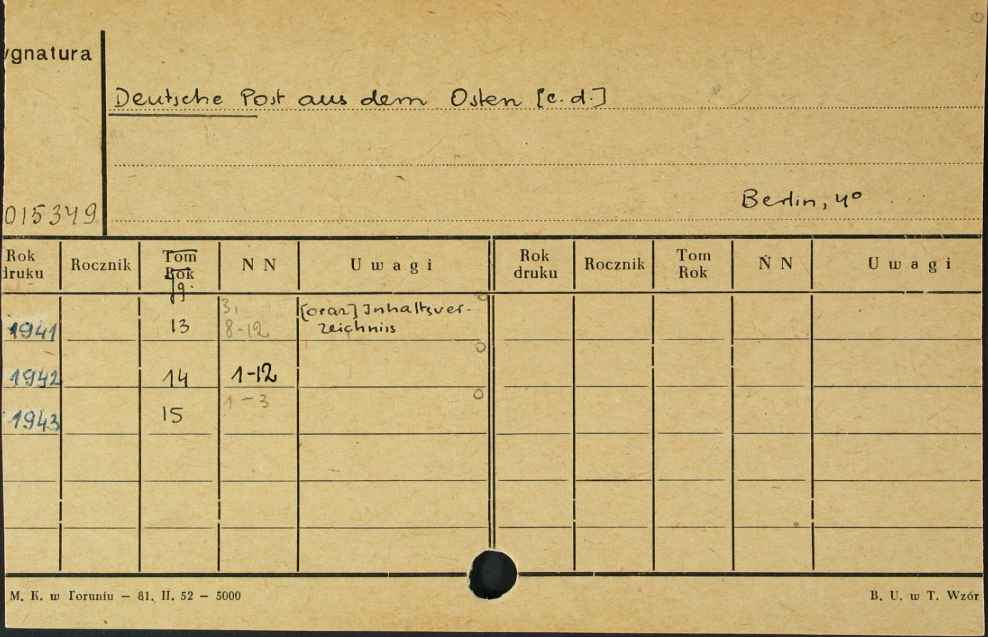 ygnatura
Deutsche Post aus dem Osten [c.d.]
Berlin, 4°
015349
Rok druku Rocznik Tom Rok Jg. N N Uwagi Rok druku Rocznik Tom Rok N N Uwagi
1941 13 3, 8-12 [oraz] Inhaltsver-
zeichnis
1942 14 1-12
1943 15 1-3
M. K. w Toruniu — 81. II. 52 — 5000 B. U. w T. Wzór